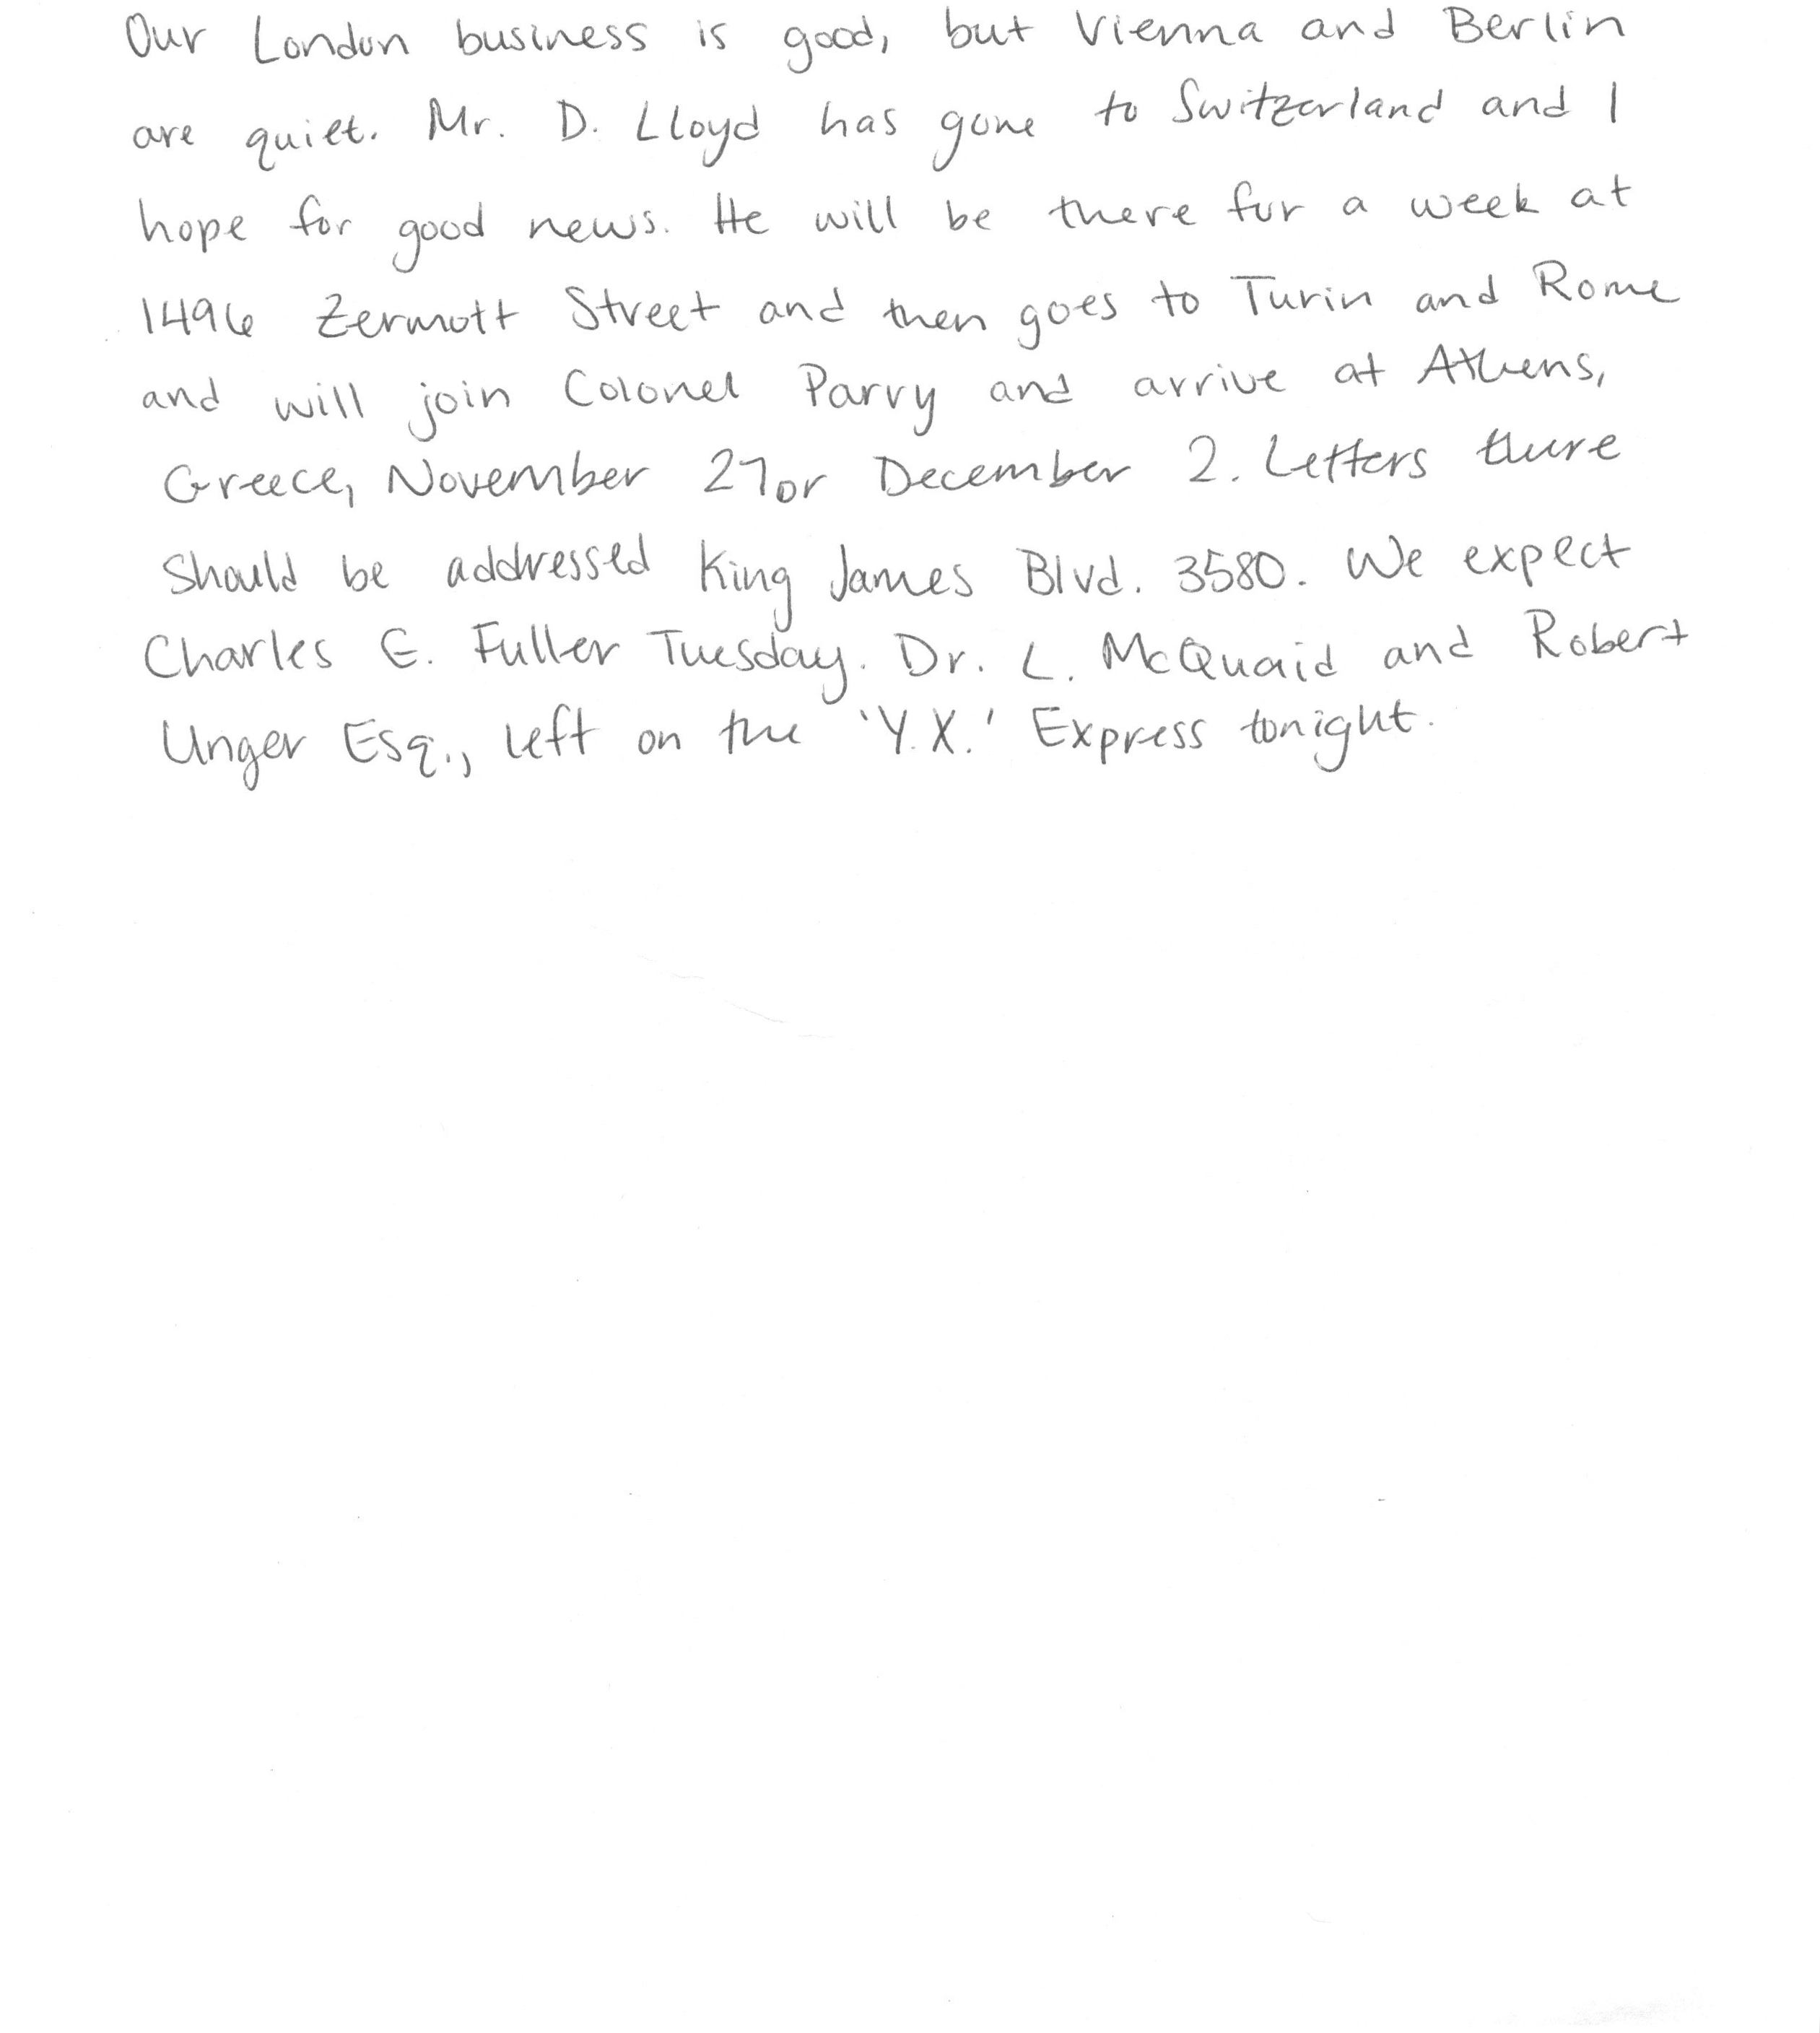 Our London business is good, but Vienna and Berlin
are quiet. Mr. D. Lloyd has gone to Switzerland and I
hope for good news. He will be there for a week at
1496 Zermott Street and then goes to Turin and Rome
and will join Colonel Parry and arrive at Athens,
Greece, November 27 or December 2. Letters there
should be addressed King James Blvd. 3580. We expect
Charles E. Fuller Tuesday. Dr. L. McQuaid and Robert
Unger Esq., left on the 'Y.X.' Express tonight.